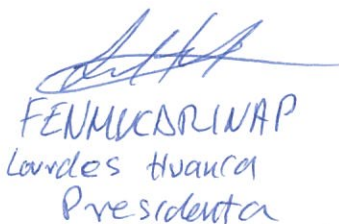 FENMUCARINAP
Lourdes Huanca
Presidenta